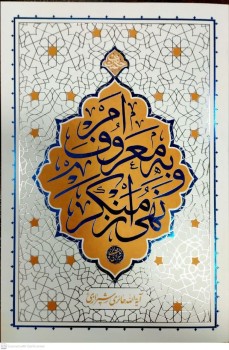 امر
به معروف
و
نهی از منکر
آیة الله حائری شیرازی